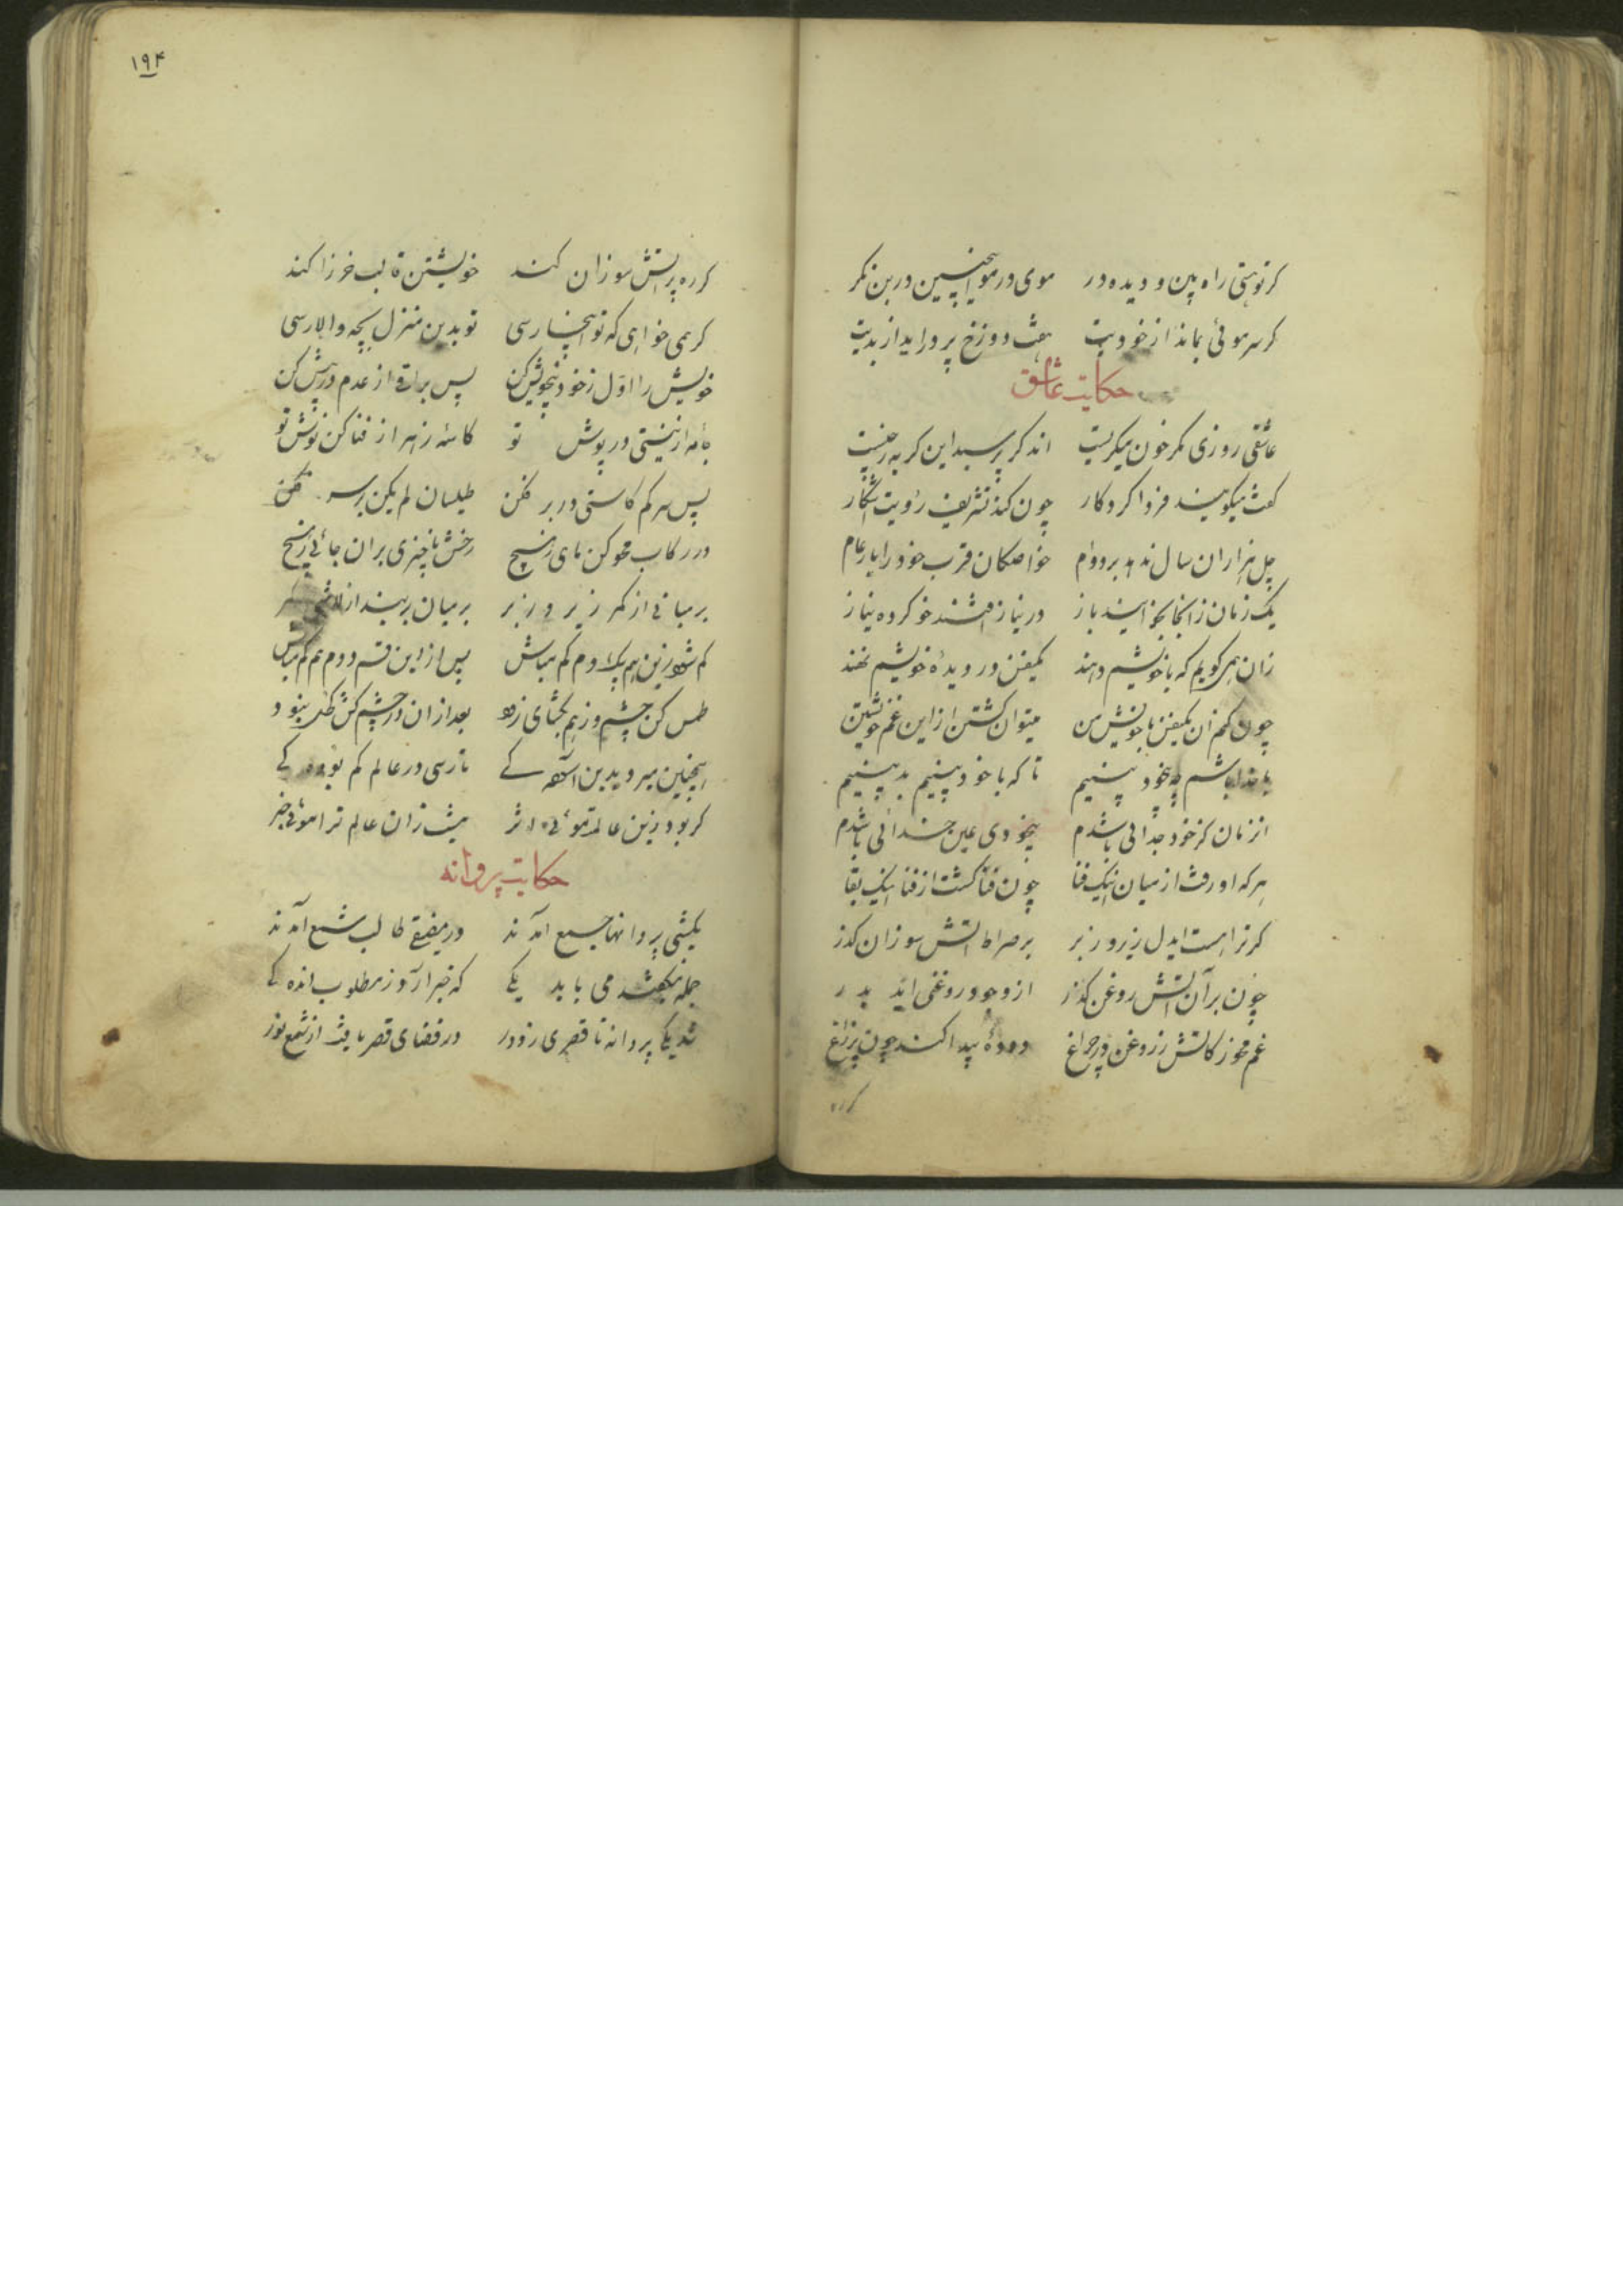 کر توهستی راه بین و دیده ور موی در موی اینچنین در بن نکر
کر سر موئی بماند از خودیت هفت دوزخ پر براید از بدیت
حکایت عاشق
عاشقی روزی مکر خون میکریست اند کر پرسید این کریه ز چیست
کفت میکویند فردا کردکار چون کند تشریف رؤیت اشکار
چل هزاران سال ندهد بر دوام خواصکان قرب خود را بار عام
یک زمان زانجا بخود ایند باز در نیاز افتند خو کرده بناز
زان همی کویم که با خویشم دهند یکنفس در دیدهٔ خویشم نهند
چون کنم ان یکنفس با خویش من میتوان کشتن از این غم خویشتن
تا که با خود بینیم بد بینیم
با خدا باشم چو بیخود بینیم
انزمان کز خود جدائی باشدم بیخودی عین خدائی باشدم
هر که او رفت از میان اینک فنا چون فنا کشت از فنا اینک بقا
کر ترا هست ایدل زیر و زبر بر صراط اتش سوزان کذر
چون بر آن اتش روغن کذر از وجود روغنی اید بدر
غم مخور کاتش ز روغن در چراغ دودهٔ پیدا کند چون پر زاغ
کرره
۱۹۴
کرره پر اتش سوزان کند خویشتن قالب خود زا کند
کر همی خواهی که تو اینجا رسی تو بدین منزل بچه والا رسی
خویش را اول ز خود بیخویش کن پس براقی از عدم در پیش کن
جامه از نیستی در پوش تو کاسهٔ زهر از فنا کن نوش تو
پس سر کم کاستی در بر فکن طیلسان لم یکن بر سر فکن
در رکاب محو کن پای ز هیچ رخش ناچیزی بران جائی ز هیچ
بر میانی از کمر زیر و زبر بر میان بر بند از لاشی کمر
کم شو زین هم بیک دم کم مباش پس از این قسم دوم هم کم مباش
طمس کن چشم و ز هم بکشای زود بعد از ان در چشم کش کحل نبود
اینچنین میرو بدین اسوده کی تا رسی در عالم کم بوده کی
کر بود زین عالم موئی اثر نیست زان عالم ترا موئی خبر
حکایت پروانه
یکشبی پروانها جمع آمدند در مضیقی طالب شمع آمدند
جمله میکفتند می باید یکی که خبر آرد ز مطلوب اندکی
شد یکی پروانه تا قصری ز دور در فضای قصر یافت از شمع نور